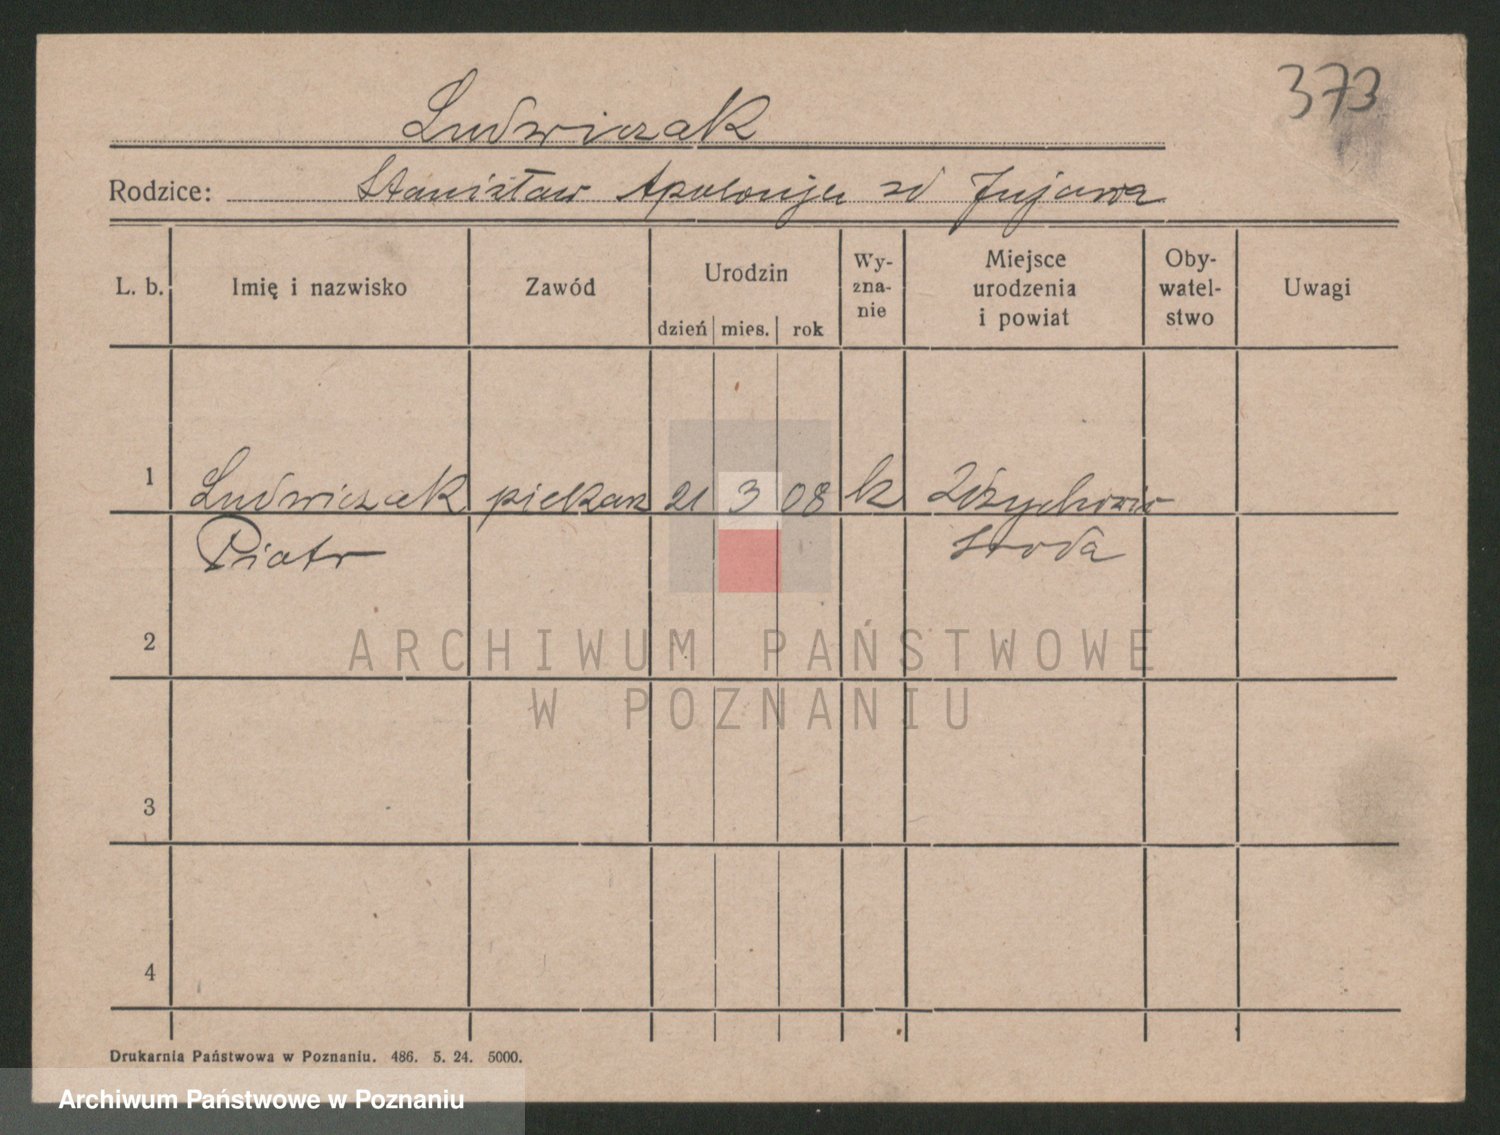 373
Ludwiczak
Rodzice: Stanisław Apolonja zd
L. b. Imię i nazwisko Zawód Urodzin dzień mies. rok Wy-zna-nie Miejsce urodzenia i powiat Oby-watel-stwo Uwagi
1 Ludwiczak piekarz 21 3 08 k
Piotr Środa
2
ARCHIWUM PAŃSTWOWE
W POZNANIU
3
4
Drukarnia Państwowa w Poznaniu. 486. 5. 24. 5000.
Archiwum Państwowe w Poznaniu